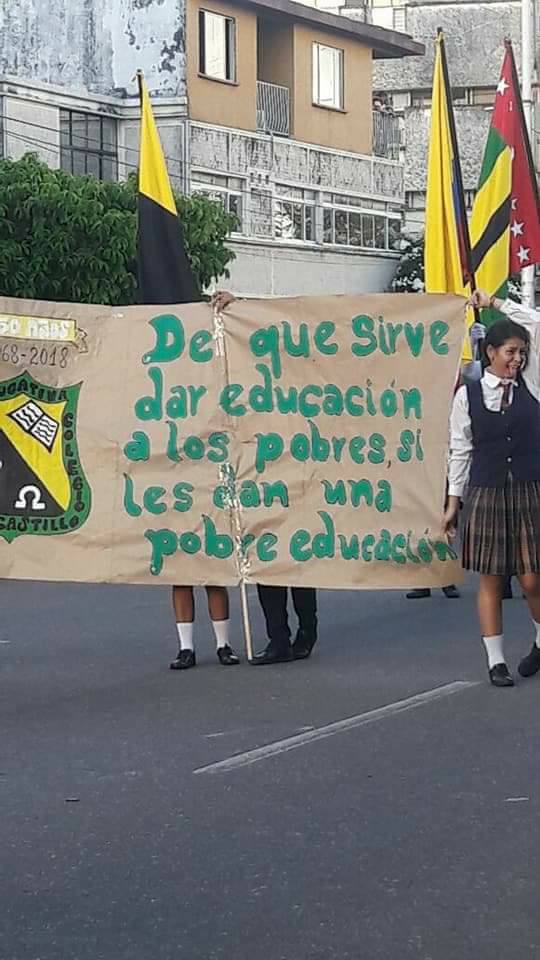 50 AÑOS
68-2018
UCATIVA
COLEGIO
CASTILLO
De que sirve
dar educación
a los pobres, si
les dan una
pobre educación